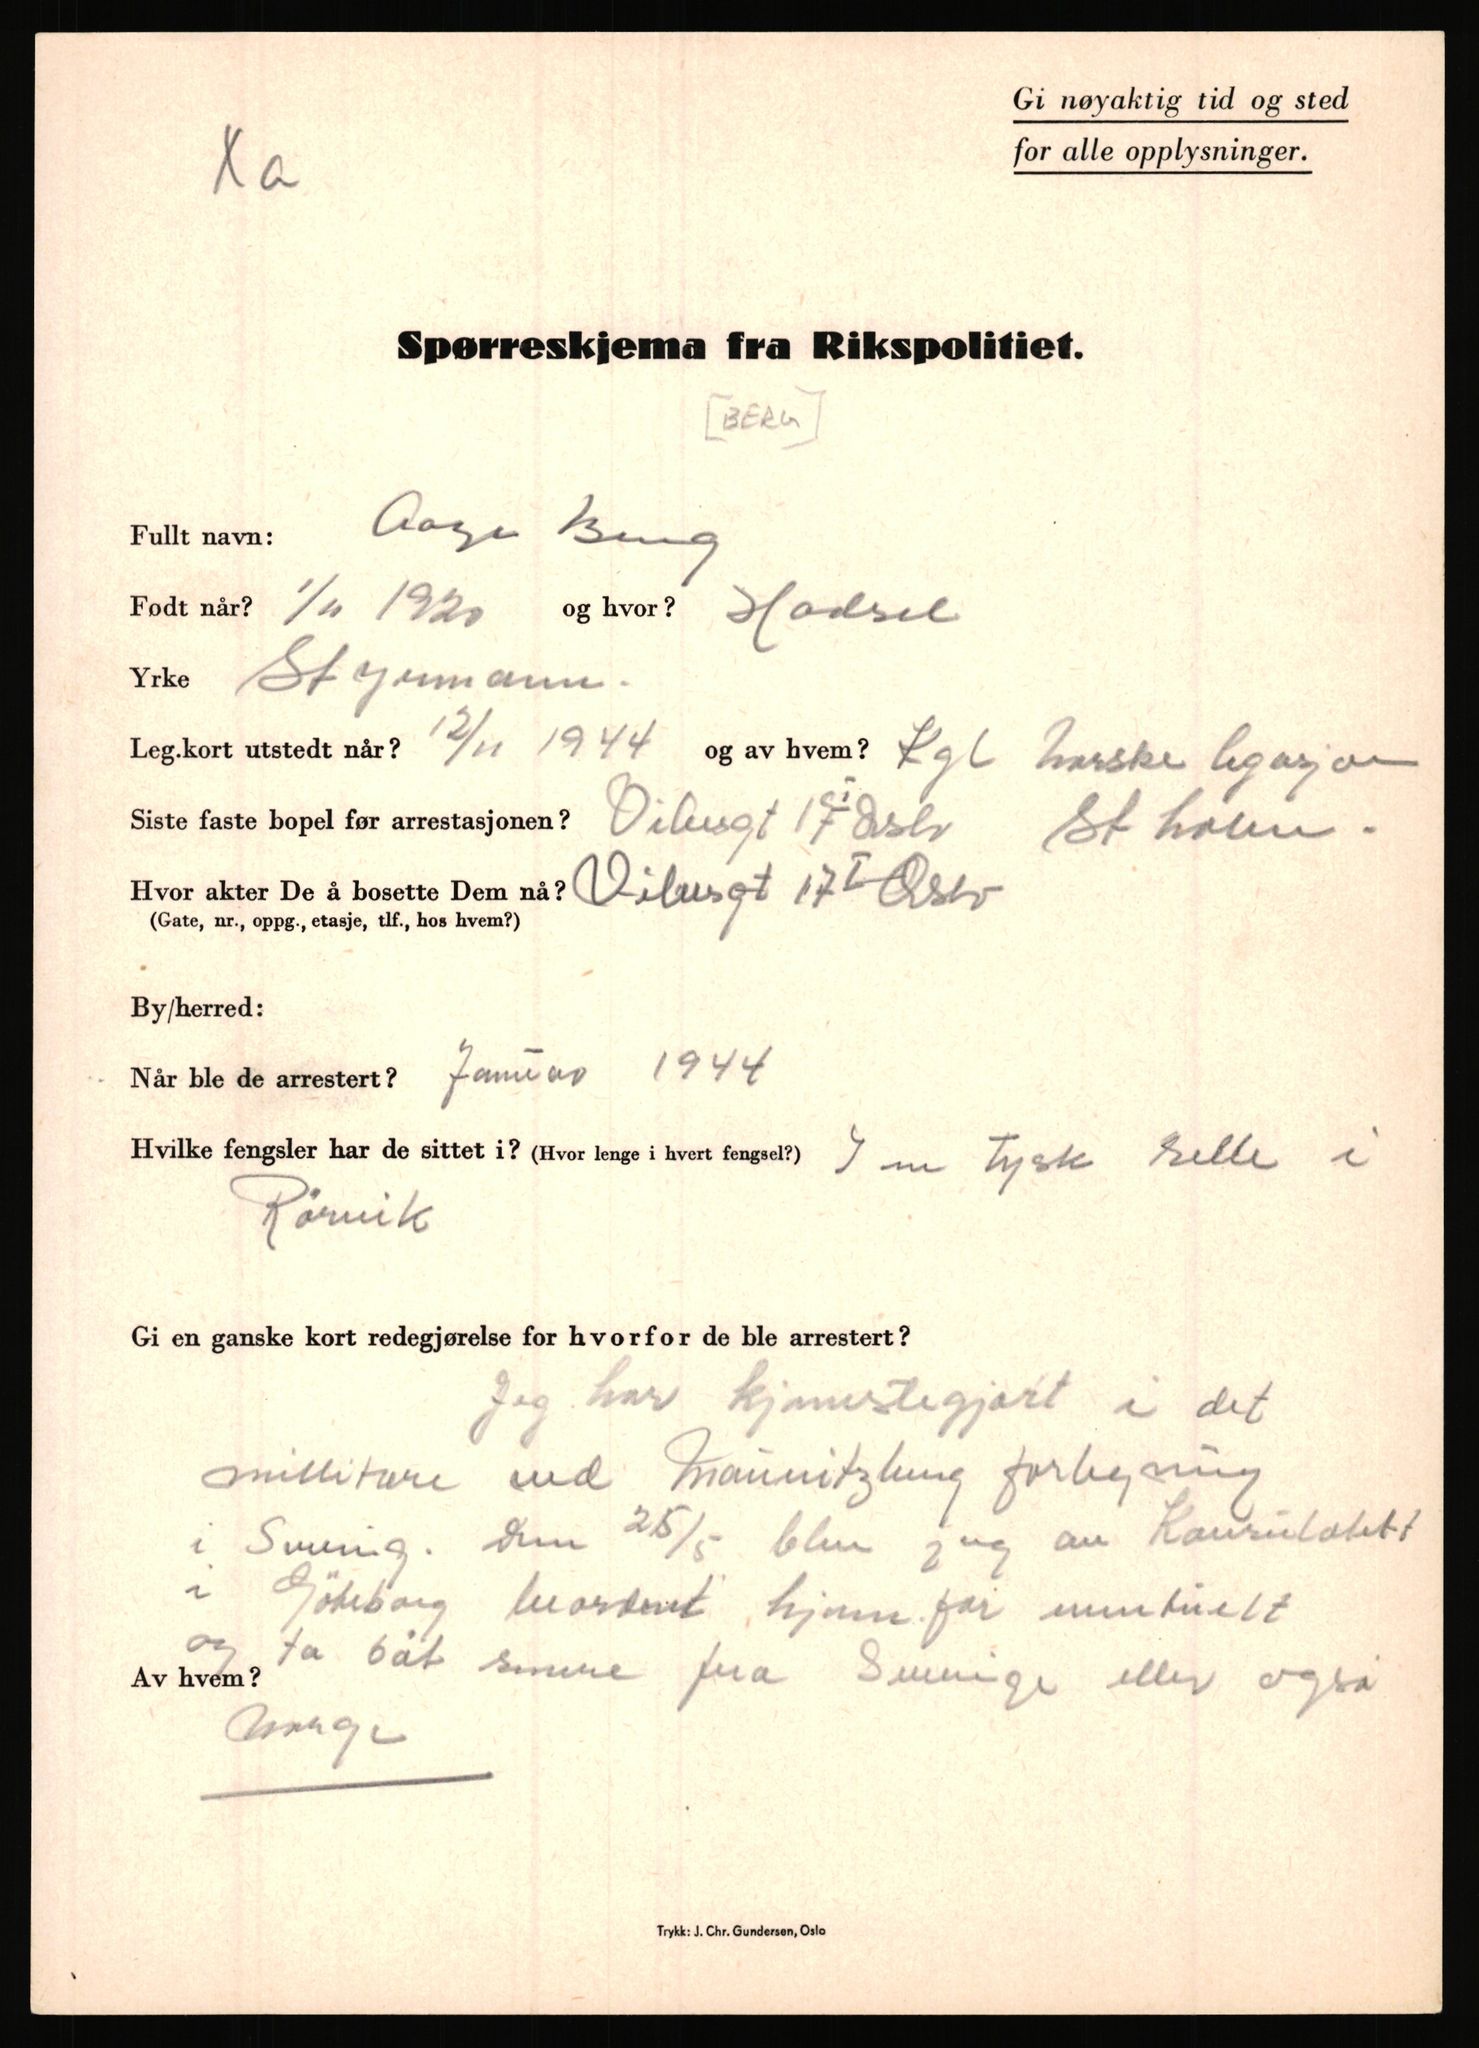 Gi nøyaktig tid og sted
for alle opplysninger.
Xa
Spørreskjema fra Rikspolitiet.
[BERG]
Fullt navn: Aage Berg
Født når? 1/11 1920 og hvor? Hadsel
Yrke Styrmann.
Leg.kort utstedt når? 12/11 1944 og av hvem? Kgl Norske legasjon
Siste faste bopel før arrestasjonen? Vibesgt 17 I Oslo St holm.
Hvor akter De å bosette Dem nå? Vibesgt 17 I Oslo
(Gate, nr., oppg., etasje, tlf., hos hvem?)
By/herred:
Når ble de arrestert? Januar 1944
Hvilke fengsler har de sittet i? (Hvor lenge i hvert fengsel?) I en tysk selle i
Rörvik
Gi en ganske kort redegjørelse for hvorfor de ble arrestert?
Jeg har tjenestegjort i det
millitære ved forlegning
i Sverige. Den 25/5 blev jeg av Konsulatet
i Göteborg beordret hjem for eventuelt
og ta båt senere fra Sverige eller også
Av hvem?
Norge
Trykk: J. Chr. Gundersen, Oslo